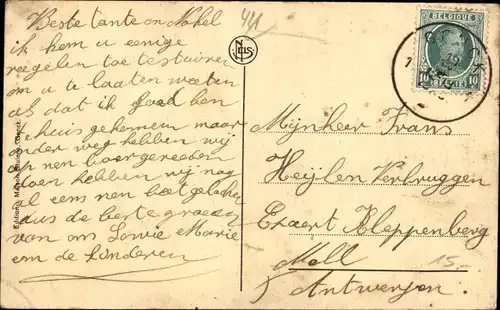 Beste tante en Nokel
ik kom u eenige
regelen toe testuiren
om u te laaten weeten
als dat ik goed ben
thuis gekommen maar
onder weg hebben wij
op nen boer gereeden
toen hebben wij nog
al eens nen keer gelachen
dus de beste groeten
van ons Lowie Marie
em de kinderen
441
NELS
BELGIQUE
10 BELGIE 10
Mijnheer Frans
Heijlen Verbruggen
Ezaert Kleppenberg
Moll
Antwerpen
15.-